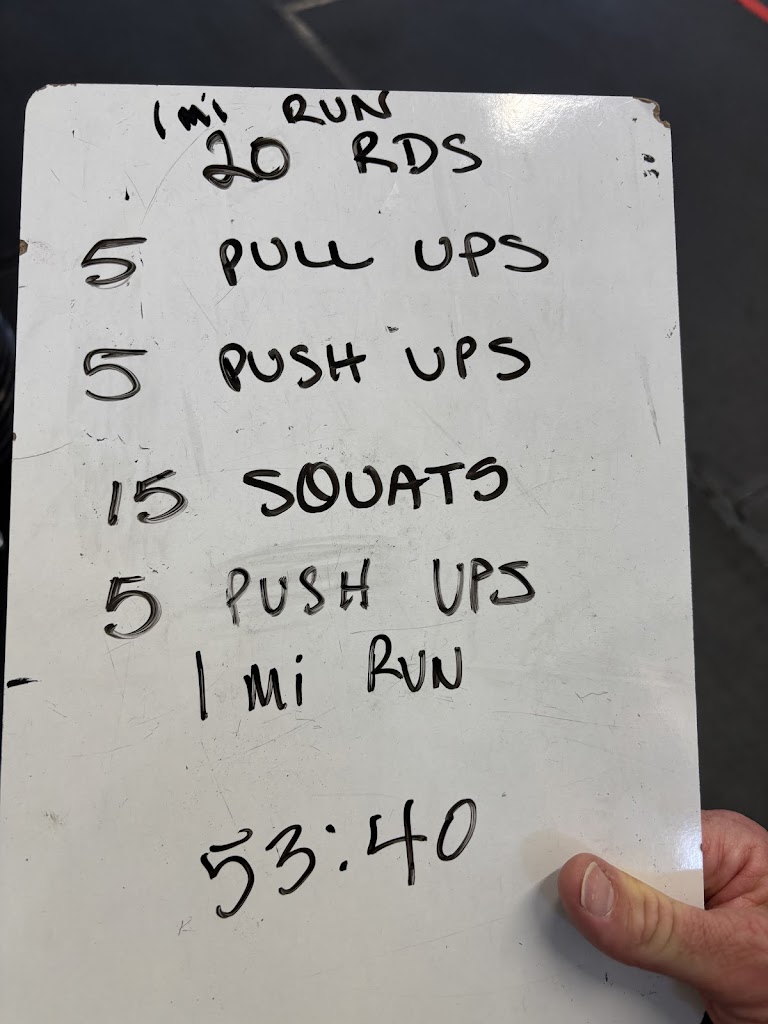 1 mi RUN
20 RDS
5 PULL UPS
5 PUSH UPS
15 SQUATS
5 PUSH UPS
1 Mi RUN
53:40